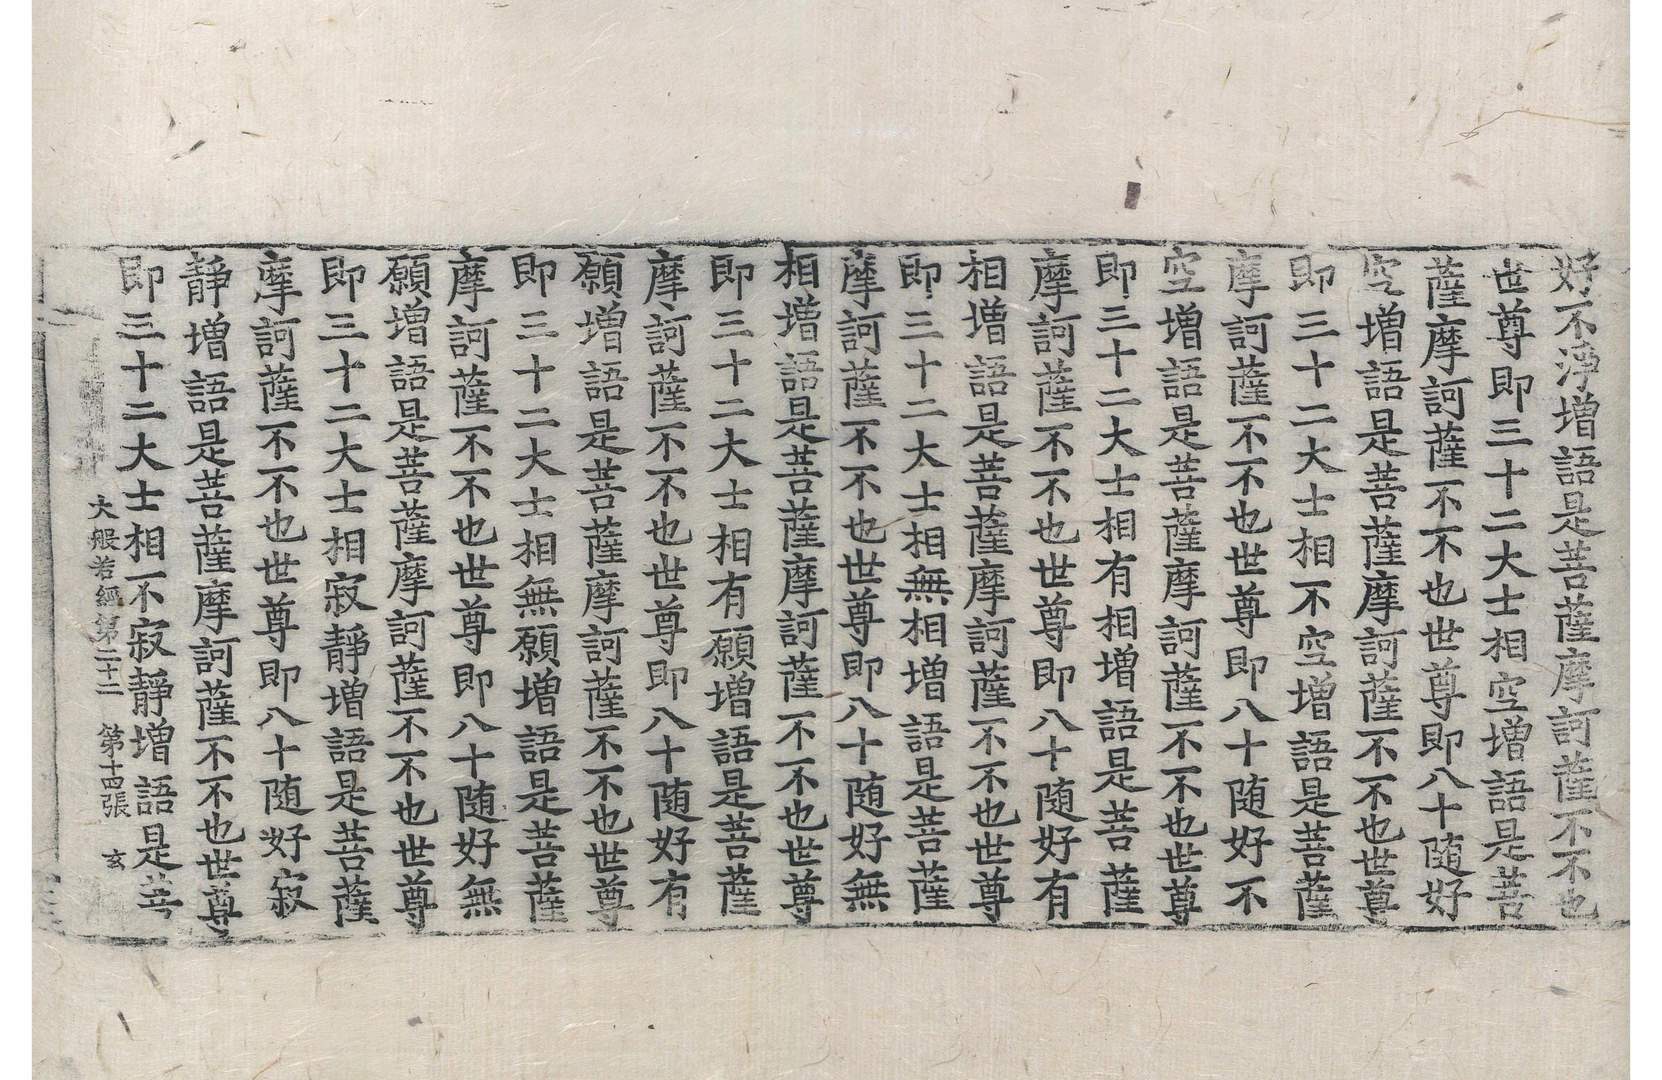 好不淨增語是菩薩摩訶薩不不也
世尊即三十二大士相空增語是菩
薩摩訶薩不不也世尊即八十随好
空增語是菩薩摩訶薩不不也世尊
即三十二大士相不空增語是菩薩
摩訶薩不不也世尊即八十随好不
空增語是菩薩摩訶薩不不也世尊
即三十二大士相有相增語是菩薩
摩訶薩不不也世尊即八十随好有
相增語是菩薩摩訶薩不不也世尊
即三十二大士相無相增語是菩薩
摩訶薩不不也世尊即八十随好無
相增語是菩薩摩訶薩不不也世尊
即三十二大士相有願增語是菩薩
摩訶薩不不也世尊即八十随好有
願增語是菩薩摩訶薩不不也世尊
即三十二大士相無願增語是菩薩
摩訶薩不不也世尊即八十随好無
願增語是菩薩摩訶薩不不也世尊
即三十二大士相寂靜增語是菩薩
摩訶薩不不也世尊即八十随好寂
靜增語是菩薩摩訶薩不不也世尊
即三十二大士相不寂靜增語是菩
大般若經第二十二 第十四張 玄